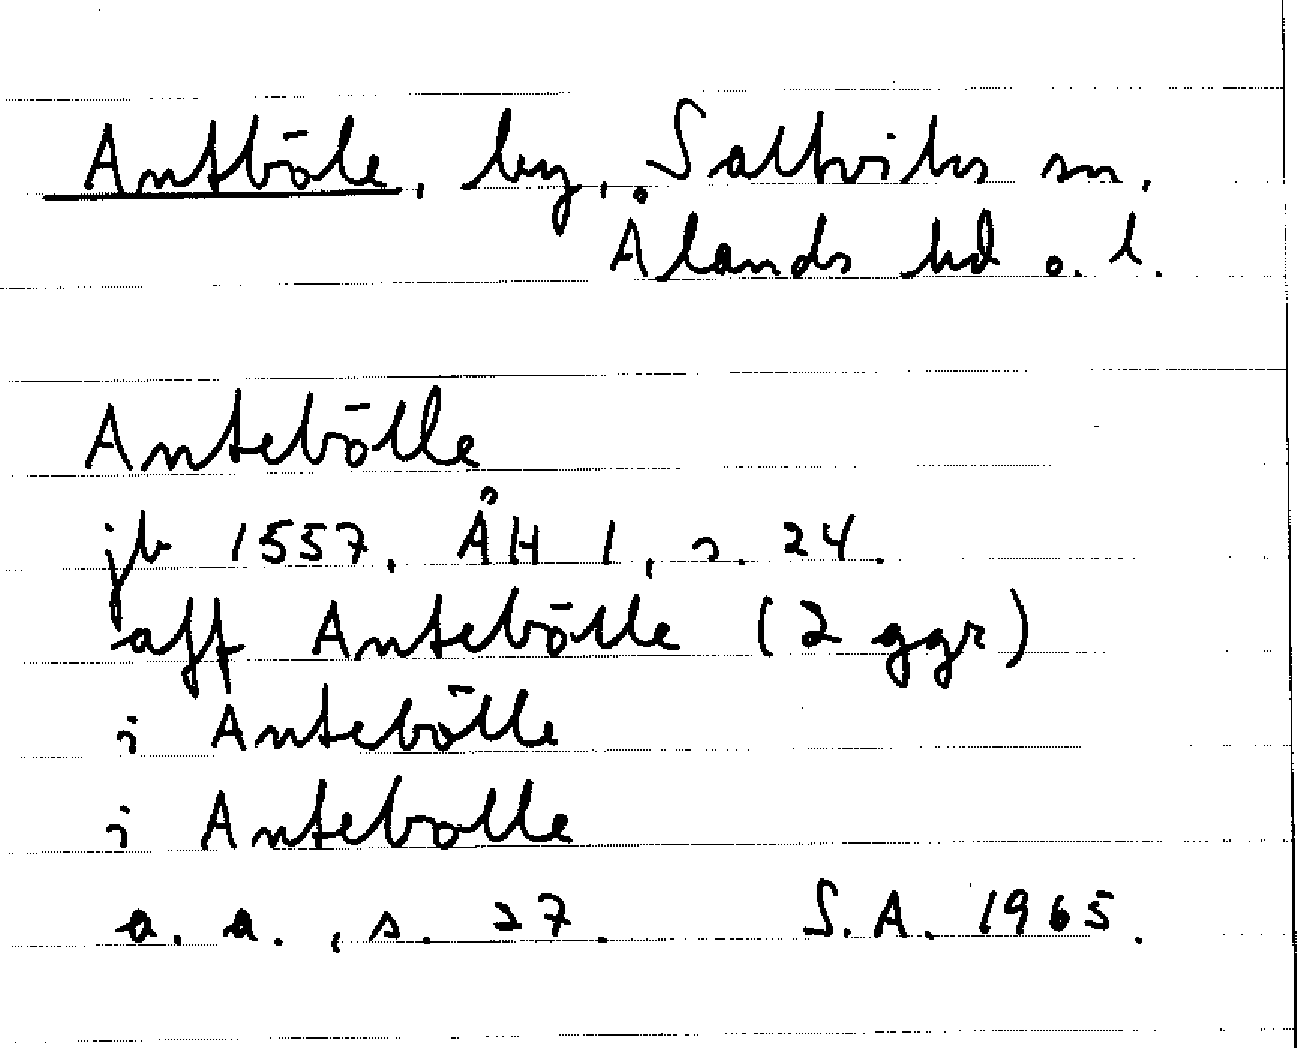 Antböle, by, Saltviks sn,
Ålands hd o. l.
Antebölle
jb 1557. ÅH 1, s. 24.
aff Antebölle (2 ggr)
i Antebölle
i Antebolle
a. a., s. 27. S.A. 1965.